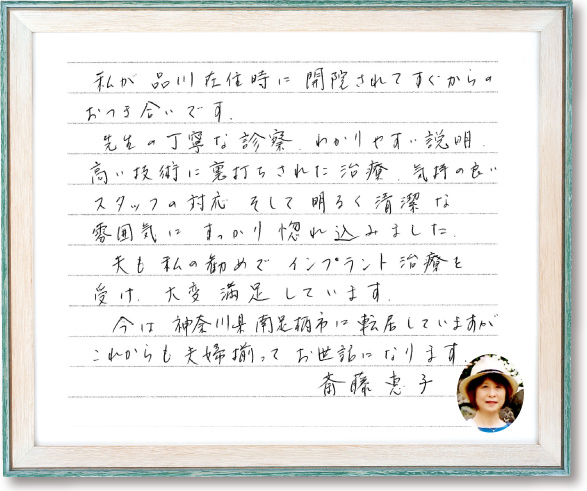 私が 品川 在住時に 開院されてすぐからの
おつき合いです.
先生の丁寧な診察. わかりやすい説明.
高い技術に裏打ちされた治療. 気持の良い
スタッフの対応 そして 明るく清潔な
雰囲気に すっかり惚れ込みました.
夫も 私の勧めで インプラント治療を
受け. 大変満足しています.
今は 神奈川県南足柄市に転居していますが
これからも 夫婦揃って お世話になります.
斎藤恵子